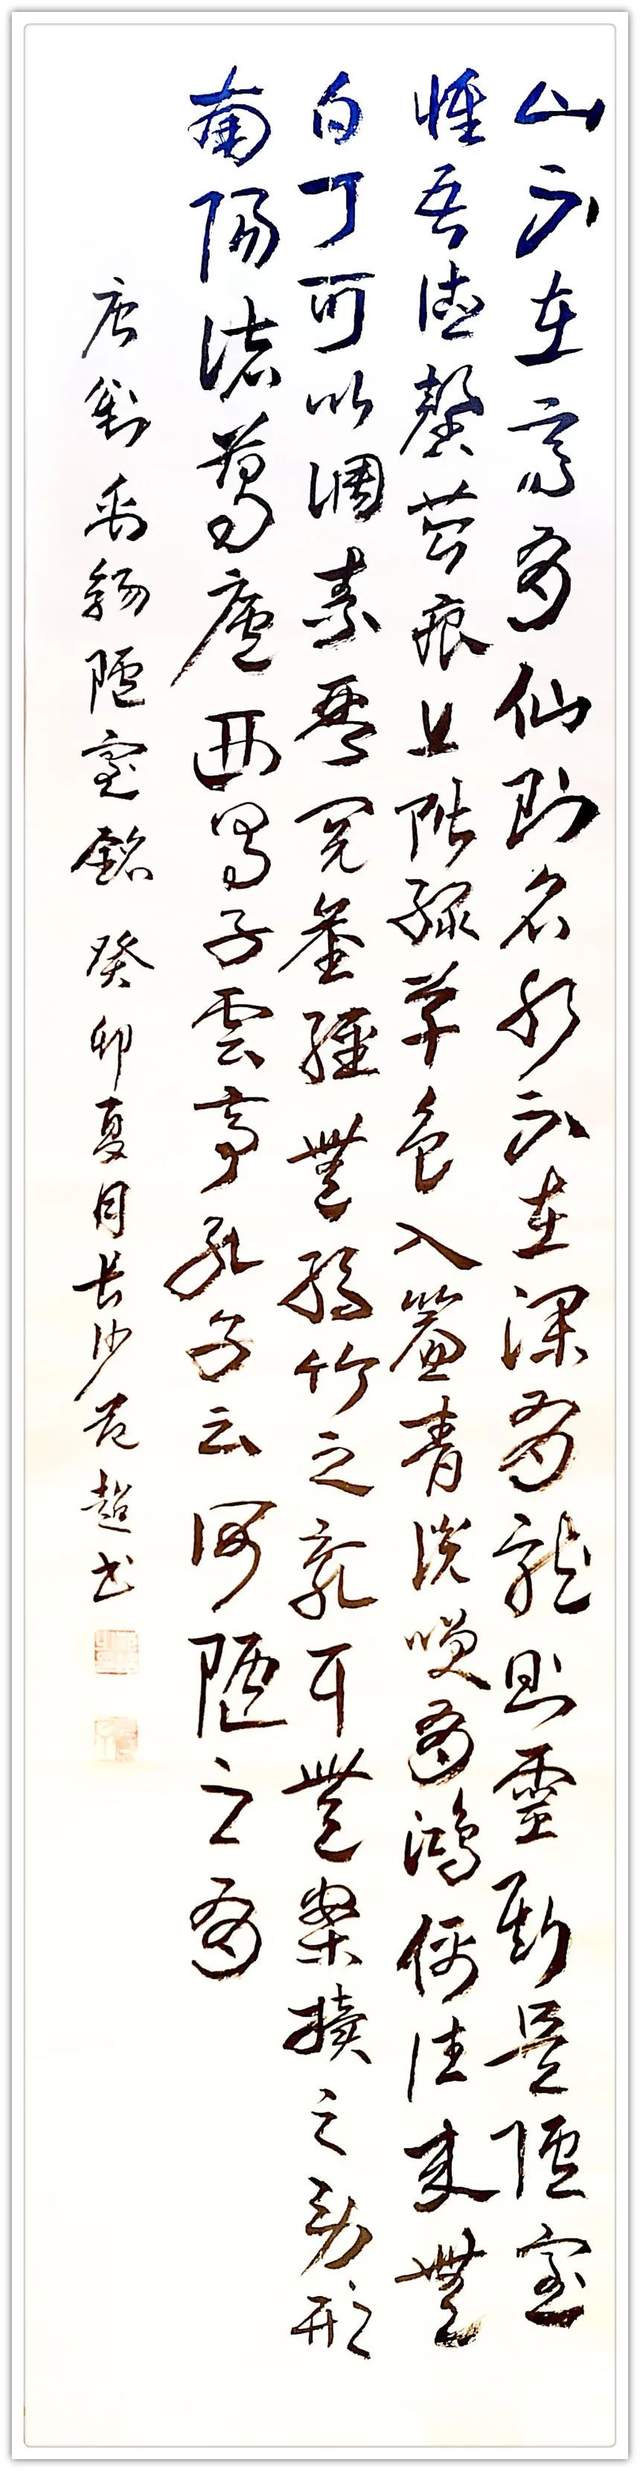 山不在高有仙則名水不在深有龍則靈斯是陋室
惟吾德馨苔痕上階綠草色入簾青談笑有鴻儒往來無
白丁可以調素琴閱金經無絲竹之亂耳無案牘之勞形
南陽諸葛廬西蜀子雲亭孔子云何陋之有
唐劉禹錫陋室銘 癸卯夏月长沙范超书